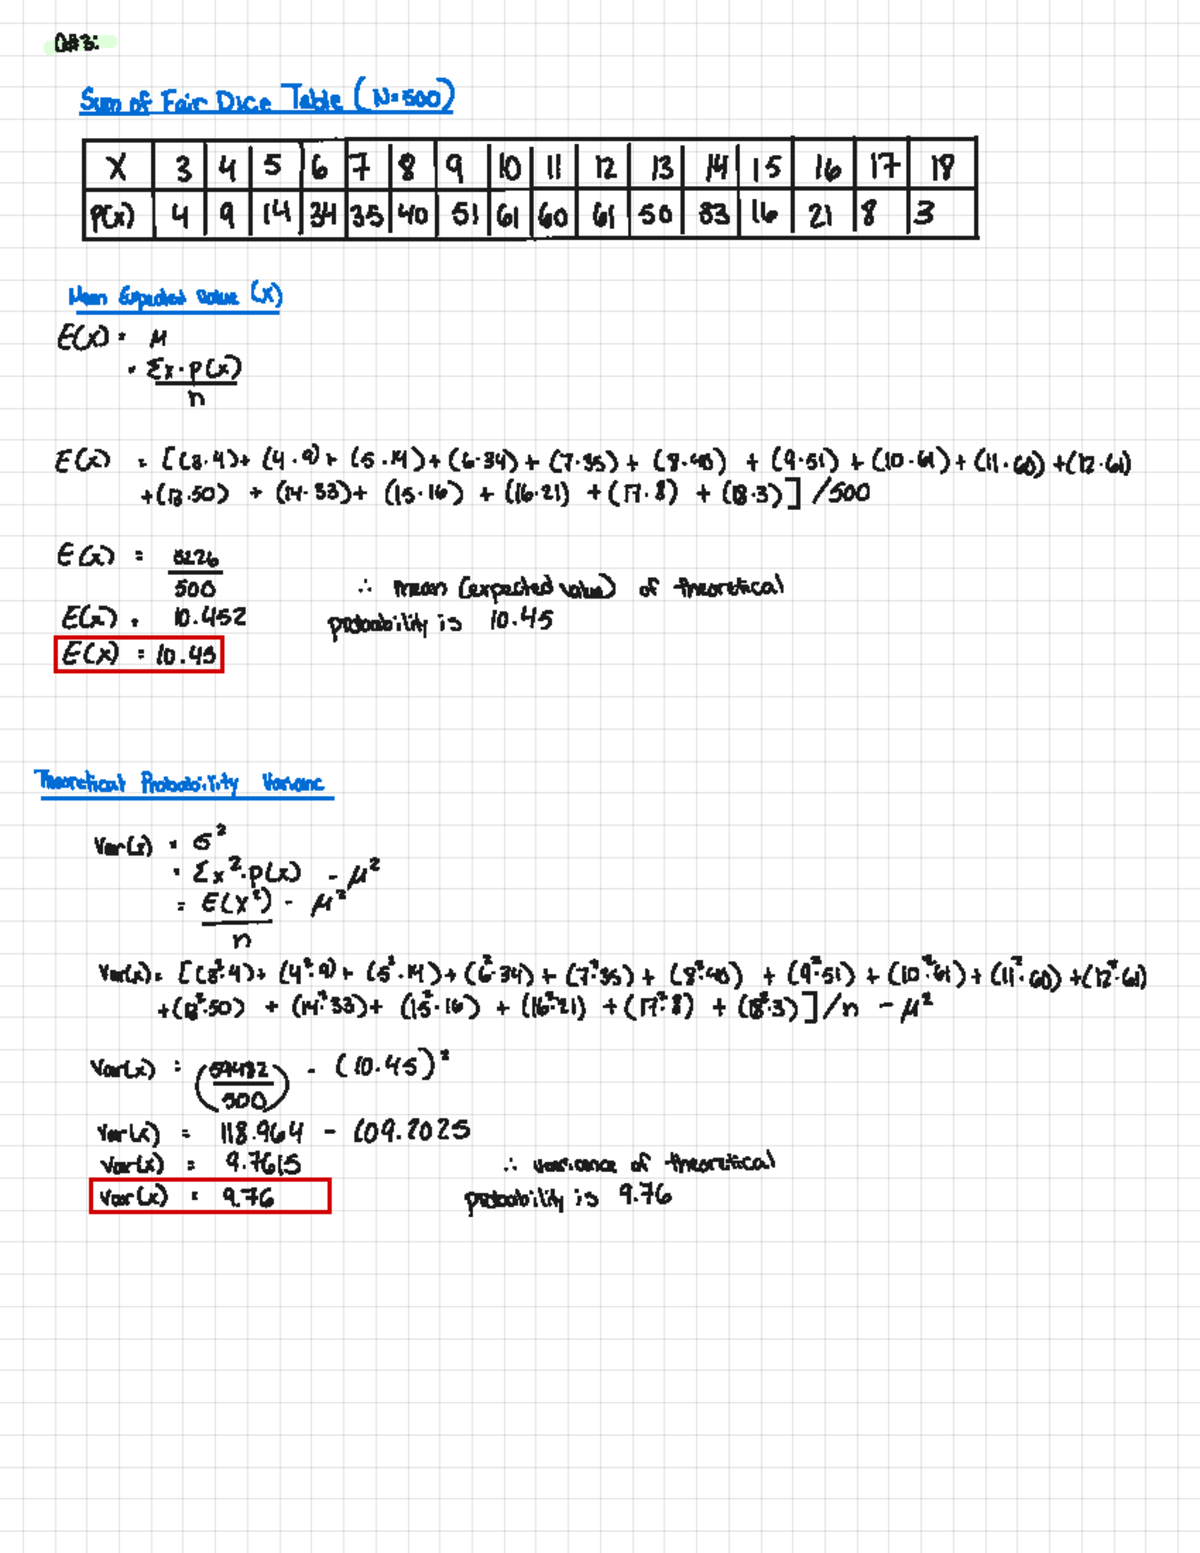 Q#3:
Sum of Fair Dice Table (N=500)
X 3 4 5 6 7 8 9 10 11 12 13 14 15 16 17 18
P(x) 4 9 14 34 35 40 51 61 60 61 50 33 16 21 8 3
Mean Expected Value (X)
E(X) = μ
= Σx·P(x)
n
E(x) = [(3·4)+ (4·9)+ (5·14)+(6·34)+(7·35)+ (8·40) + (9·51) + (10·61)+(11·60)+(12·61)
+(13·50) + (14·33)+ (15·16) + (16·21) +(17·8) + (18·3)] /500
E(x) = 5226
500
∴ mean (expected value) of theoretical
E(x) = 10.452
probability is 10.45
E(X) = 10.45
Theoretical Probability Varianc
Var(x) = σ²
= Σx²·P(x) - μ²
= E(X²) - μ²
n
Var(x)= [(3²·4)+ (4²·9)+ (5²·14)+(6²·34)+(7²·35)+ (8²·40) + (9²·51) + (10²·61)+(11²·60)+(12²·61)
+(13²·50) + (14²·33)+ (15²·16) + (16²·21) +(17²·8) + (18²·3)]/n - μ²
Var(x) = (59482
500) - (10.45)²
Var(x) = 118.964 - 109.2025
Var(x) = 9.7615
∴ variance of theoretical
Var(x) = 9.76
probability is 9.76